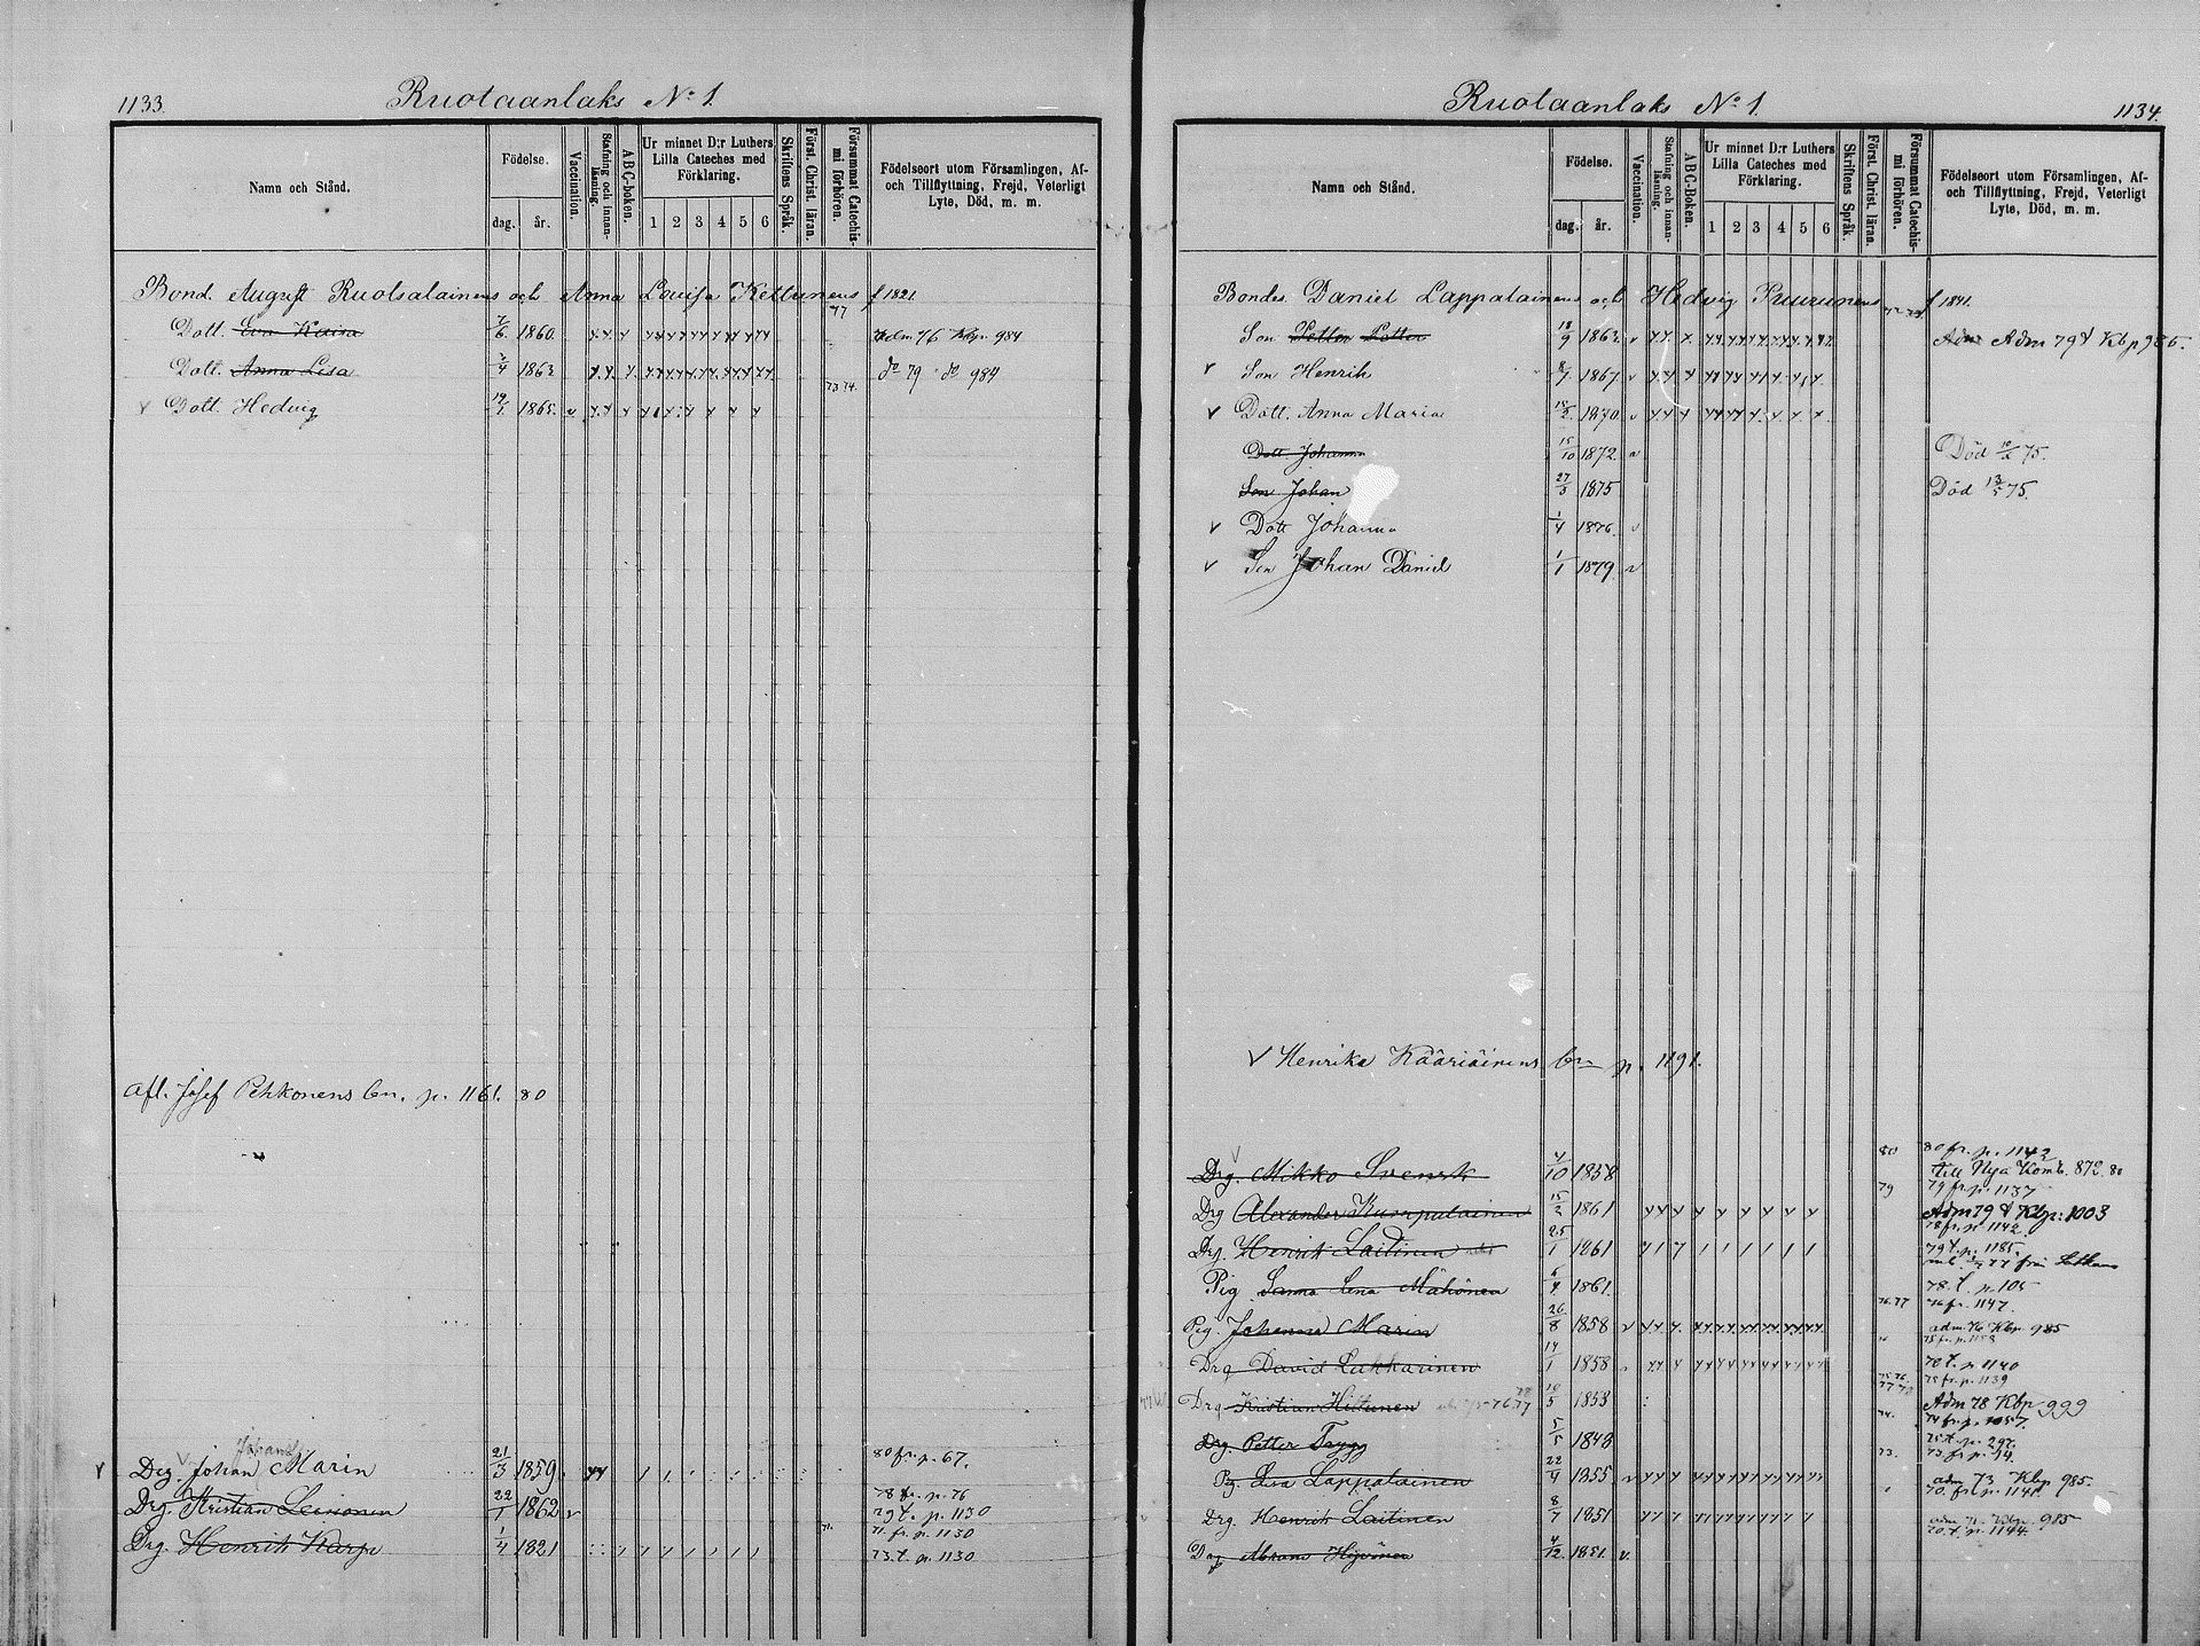 1133.
Ruotaanlaks No 1.
Namn och Stånd.
Födelse.
dag.
år.
Vaccination.
Stafning och innan-läsning.
ABC-boken.
Ur minnet D:r Luthers
Lilla Cateches med
Förklaring.
1 2 3 4 5 6
Skriftens Språk.
Först. Christ. läran.
Försummat Catechis-
mi förhören.
Födelseort utom Församlingen, Af-
och Tillflyttning, Frejd, Veterligt
Lyte, Död, m. m.
Bond. August Ruotsalainens och Anna Lovisa Kettunens f 1821
Dott. Eva Kaisa 7/6 1860. 77 adm 76 Kbp. 984
Dott. Anna Lisa 1863 do 79 do 984
v Dott. Hedvig 19/1 1865. v 73 74.
Afl. Josef Pehkonens bn. p. 1161. 80
Johan
v Drg. Johan Marin 21/3 1859 80 fr. p. 67.
Drg. Kristian Leinonen 22/1 1862 v 78 fr. p. 76
79 t. p. 1130
Drg. Henrik Karju 1/4 1821 71. 71. fr. p. 1130
73. t. p. 1130
Ruotaanlaks No 1.
1134.
Namn och Stånd.
Födelse.
dag.
år.
Vaccination.
Stafning och innan-läsning.
ABC-Boken.
Ur minnet D:r Luthers
Lilla Cateches med
Förklaring.
1 2 3 4 5 6
Skriftens Språk.
Först. Christ. läran.
Försummat Catechis-
mi förhören.
Födelseort utom Församlingen, Af-
och Tillflyttning, Frejd, Veterligt
Lyte, Död, m. m.
Bonden Daniel Lappalainens och Hedvig Puurunens f 1841.
Son Petter 18/9 1862 v Adm 79 Kbp 985.
v Son Henrik 1867 v
v Dott. Anna Maria 15/2 1870 v
Dott Johanna 15/10 1872. v Död 10/2 75.
Son Johan 27/3 1875 Död 13/5 75.
v Dott Johanna 1/4 1876. v
v Son Johan Daniel 1/1 1879 v
v Henrika Kääriäinens bn p. 1191.
80 80 fr. p. 1142
Drg. Mikko Svensk 4/10 1858 till Nya Komb. 872. 80
79 79 fr. p. 1137
Drg Alexander Kumpulainen 15/2 1861 Adm 79 Kbp: 1003
78 fr. p. 1142
Drg. Henrik Laitinen 25/1 1861 79 t. p. 1185.
Pig Sanna Lena Mähönen 6/4 1861. 78. t. p. 105
76.77 76 fr. 1147.
Pig. Johanna Marin 26/8 1858 v adm. 76 Kbp. 985
75 fr. p. 1158
Drg David Lukkarinen 14/1 1858 70 t. p. 1140
75 fr. p. 1139
Drg Kristian Hiltunen 10/5 1853 Adm 78 Kbp 999
74 fr. p. 1057.
Drg. Petter Trygg 5/5 1843 75 t. p. 297.
73. 73 fr p. 94.
Pg. Lisa Lappalainen 22/4 1855 v adm 73 Kbp 985.
70. fr. p. 1141.
Drg. Henrik Laitinen 8/7 1851 adm 71. Kbp. 985
70. t. p. 1144.
Drg Abram Hyvönen 4/12. 1851. v.